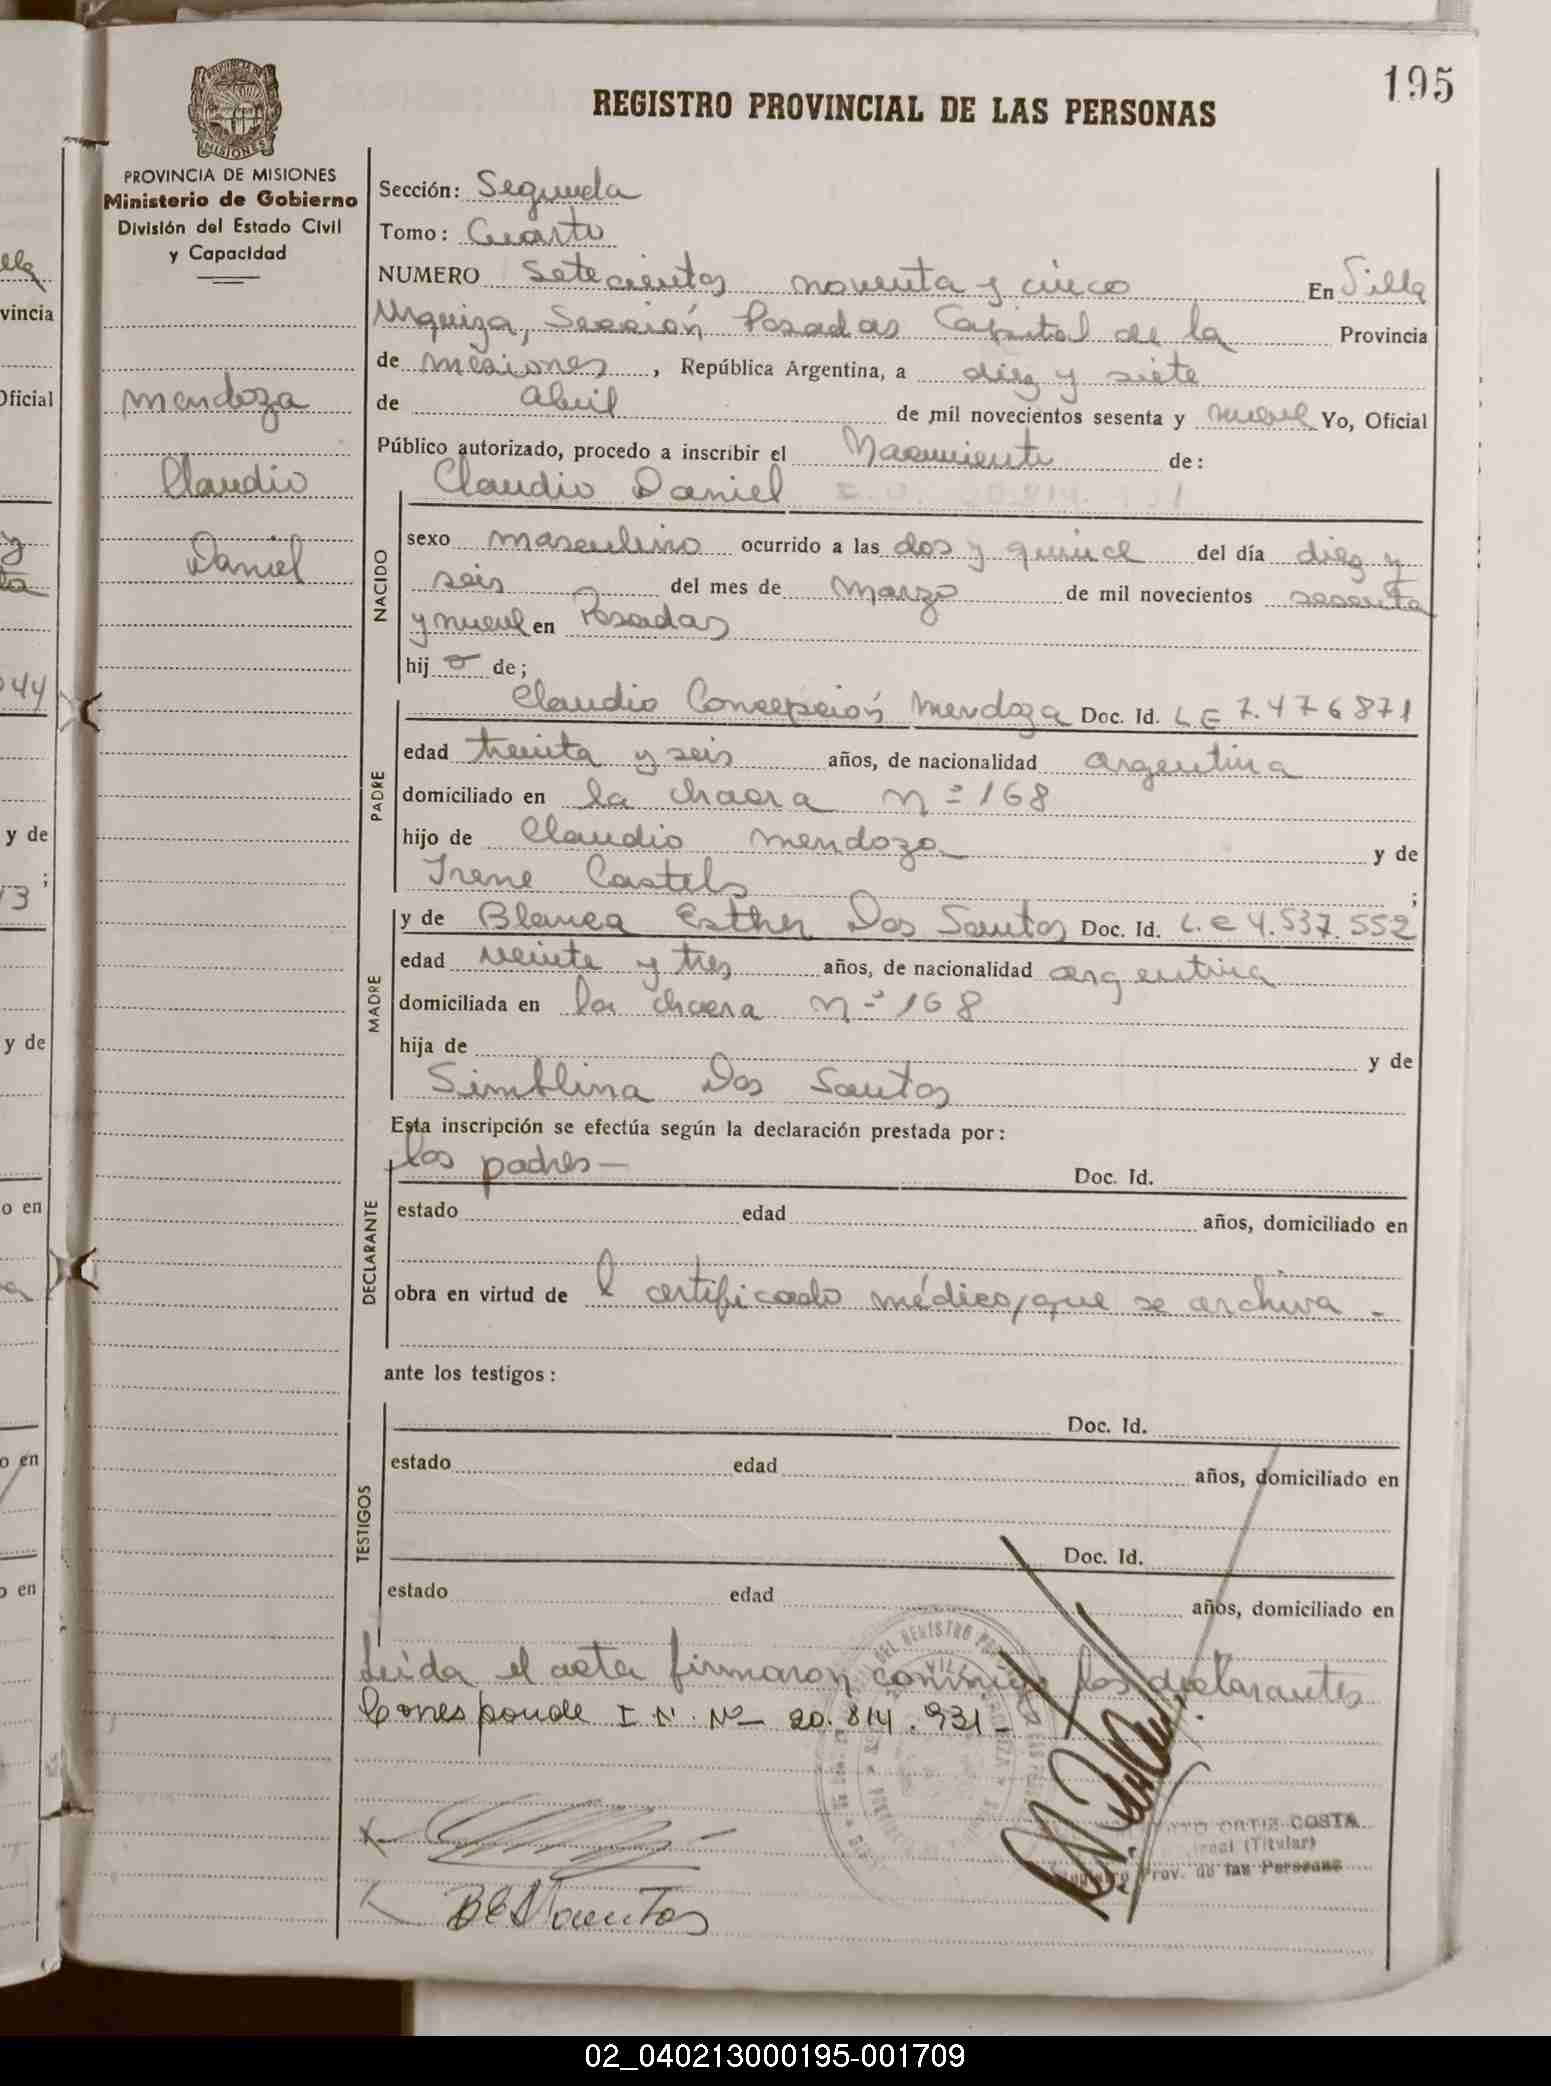 195
REGISTRO PROVINCIAL DE LAS PERSONAS
PROVINCIA DE MISIONES
Ministerio de Gobierno
División del Estado Civil
y Capacidad
mendoza
Claudio
Daniel
Sección: Segunda
Tomo: Cuarto
NUMERO Setecientos noventa y cinco En Villa
Urquiza, Sección Posadas Capital de la Provincia
de misiones, República Argentina, a diez y siete
de abril de mil novecientos sesenta y nueve Yo, Oficial
Público autorizado, procedo a inscribir el Nacimiento de:
Claudio Daniel
NACIDO
sexo masculino ocurrido a las dos y quince del día diez y
seis del mes de marzo de mil novecientos sesenta
y nueve en Posadas
hij o de;
PADRE
Claudio Concepción Mendoza Doc. Id. L E 7.476871
edad treinta y seis años, de nacionalidad argentina
domiciliado en la chacra n° 168
hijo de Claudio mendoza y de
Irene Castels ;
MADRE
y de Blanca Esther Dos Santos Doc. Id. L.C 4.537.552
edad veinte y tres años, de nacionalidad argentina
domiciliada en la chacra n° 168
hija de y de
Simblina Dos Santos
Esta inscripción se efectúa según la declaración prestada por:
DECLARANTE
los padres — Doc. Id.
estado edad años, domiciliado en
obra en virtud de l certificado médico, que se archiva -
ante los testigos:
TESTIGOS
Doc. Id.
estado edad años, domiciliado en
Doc. Id.
estado edad años, domiciliado en
Leida el acta firmaron conmigo los declarantes
Corresponde I. N. N° 20.814.931-
ORTIZ COSTA
(Titular)
Prov. de las Personas
B E D Santos
vincia
Oficial
044
y de
13 ;
y de
o en
o en
o en
02_040213000195-001709